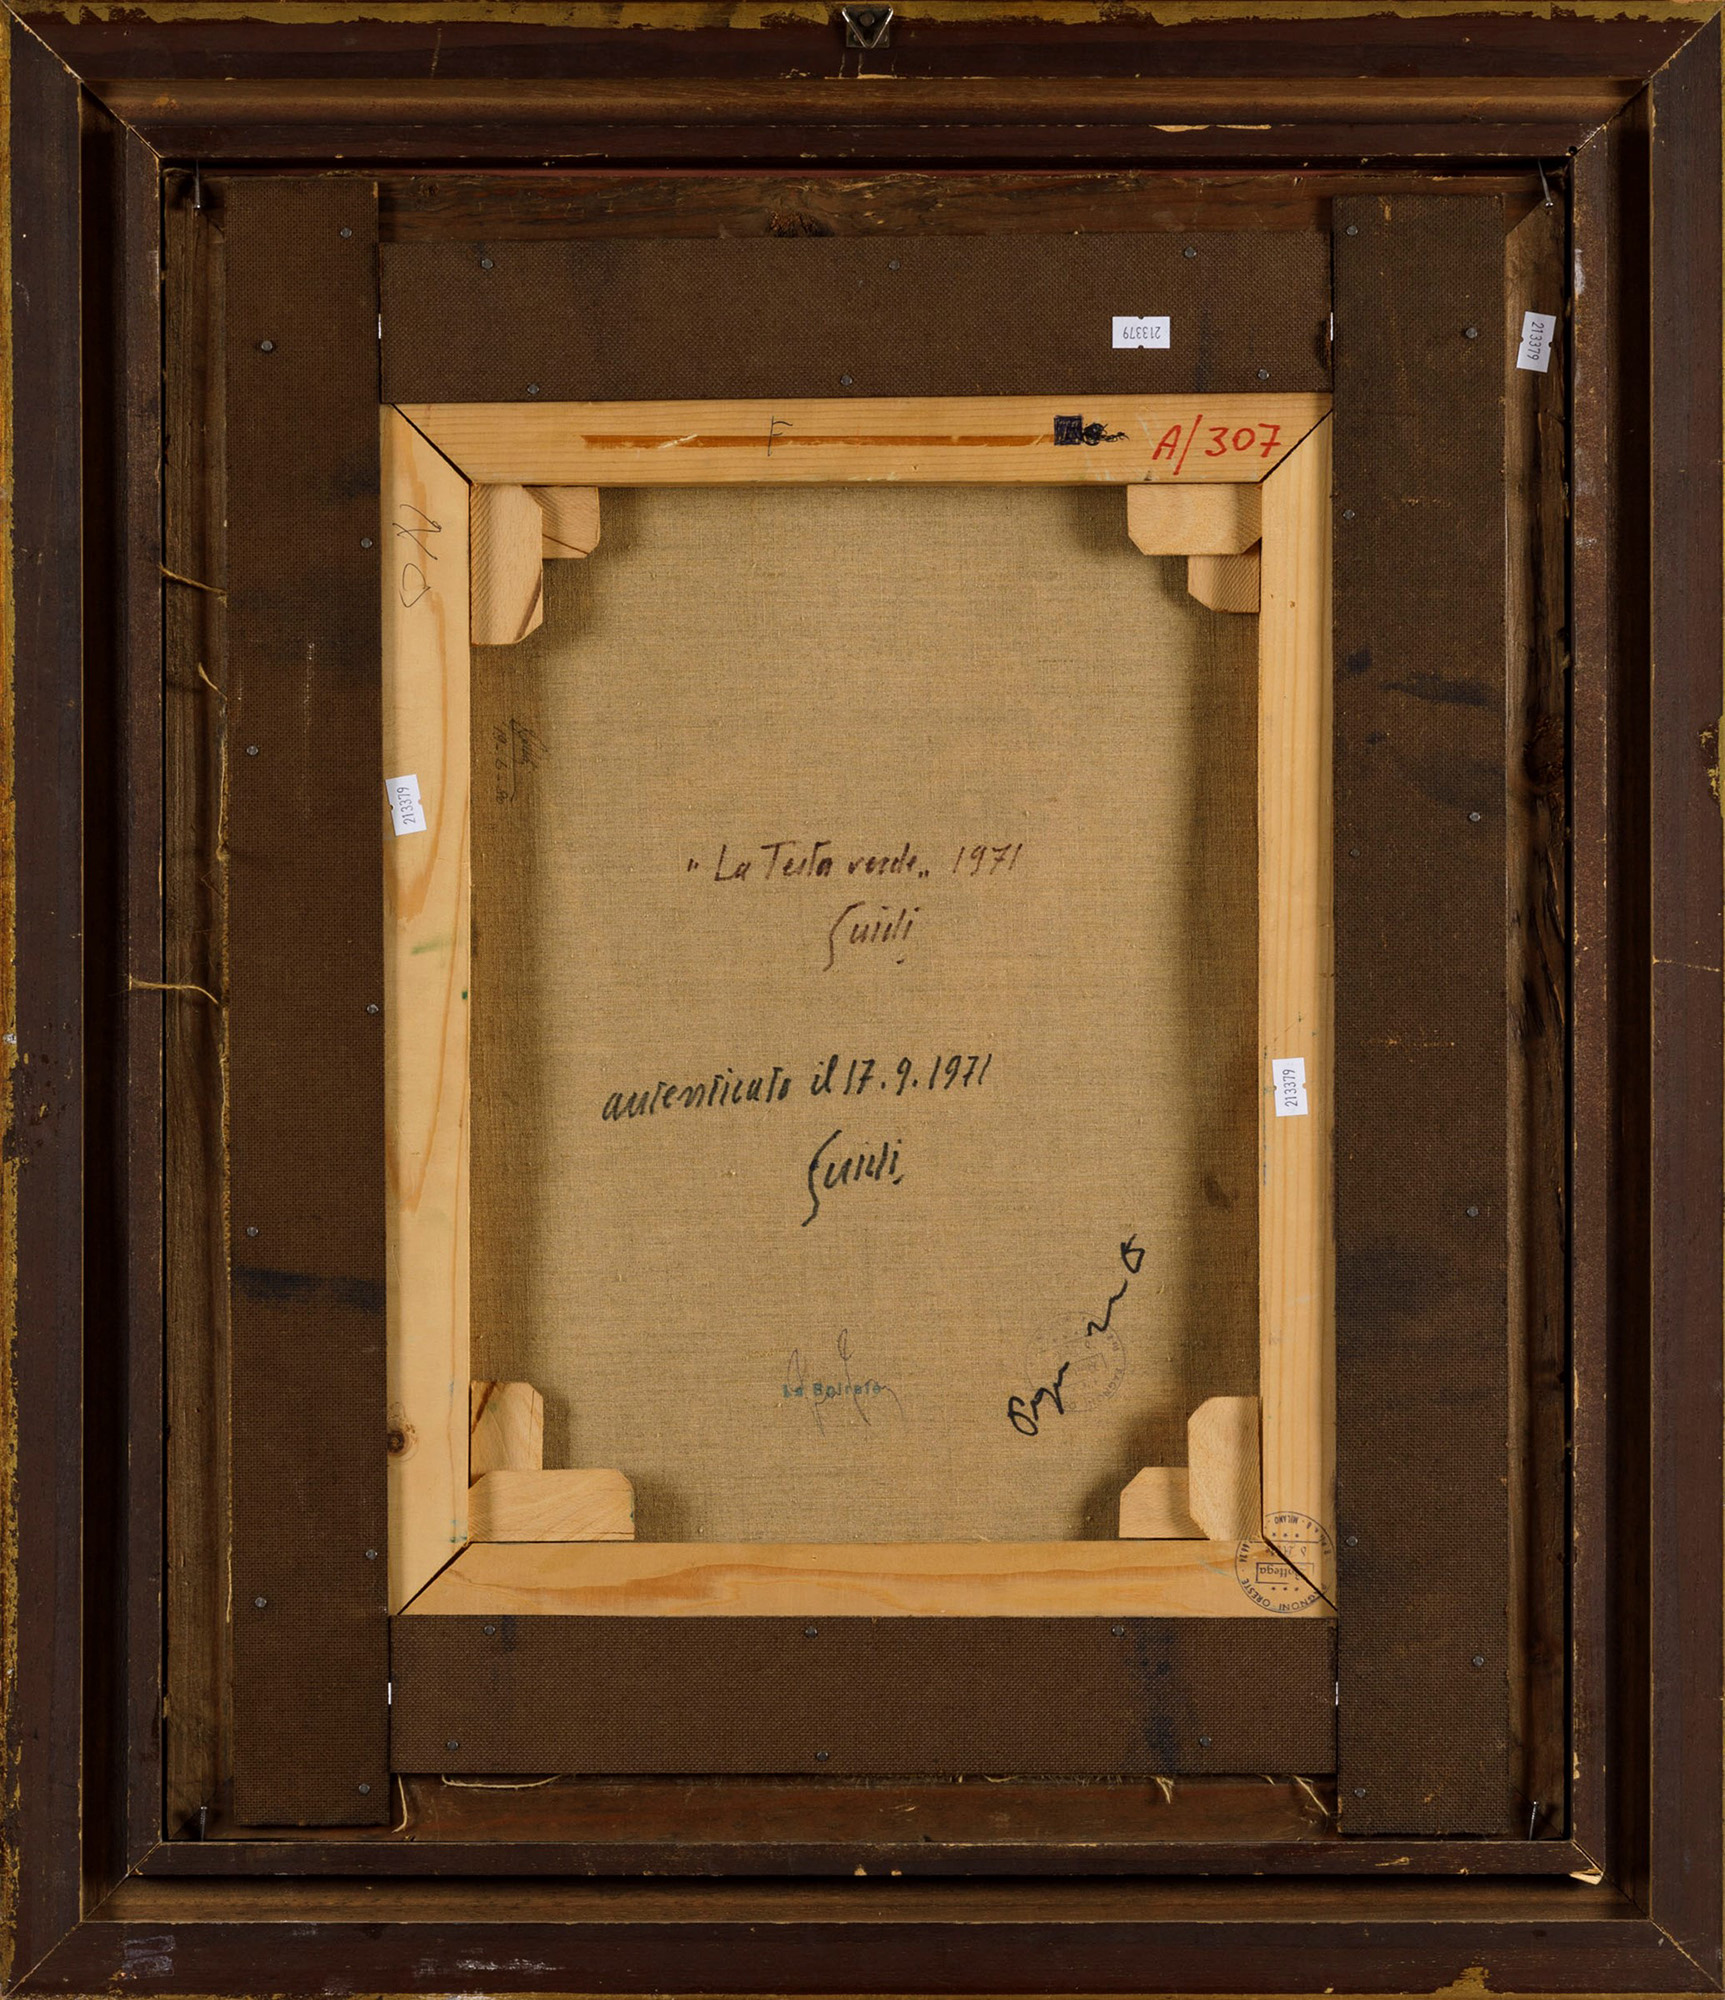 213379
213379
F
A/307
213379
"La Testa verde" 1971
Guidi
autenticato il 17.9.1971
Guidi
213379
La Spirale
MILANO
Bottega
ORESTE